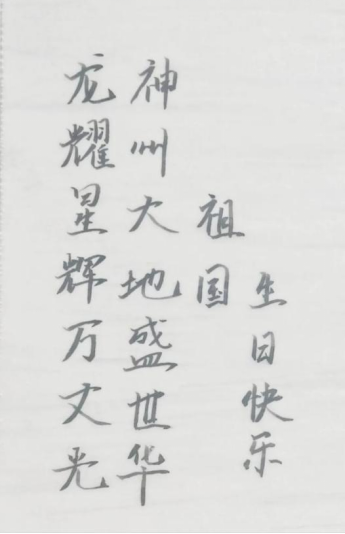 生日快乐
祖国
神州大地盛世华
龙耀星辉万丈光